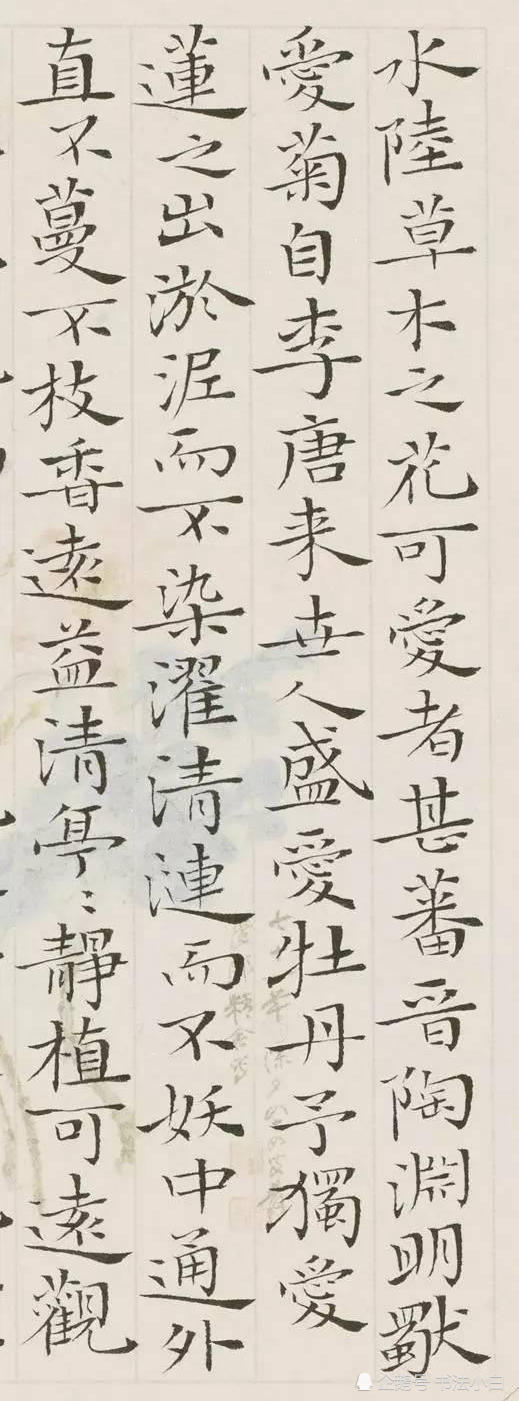 水陸草木之花可愛者甚蕃晋陶淵明獨
愛菊自李唐来世人盛愛牡丹予獨愛
蓮之出淤泥而不染濯清漣而不妖中通外
直不蔓不枝香遠益清亭〻靜植可遠觀
企鹅号 书法小白